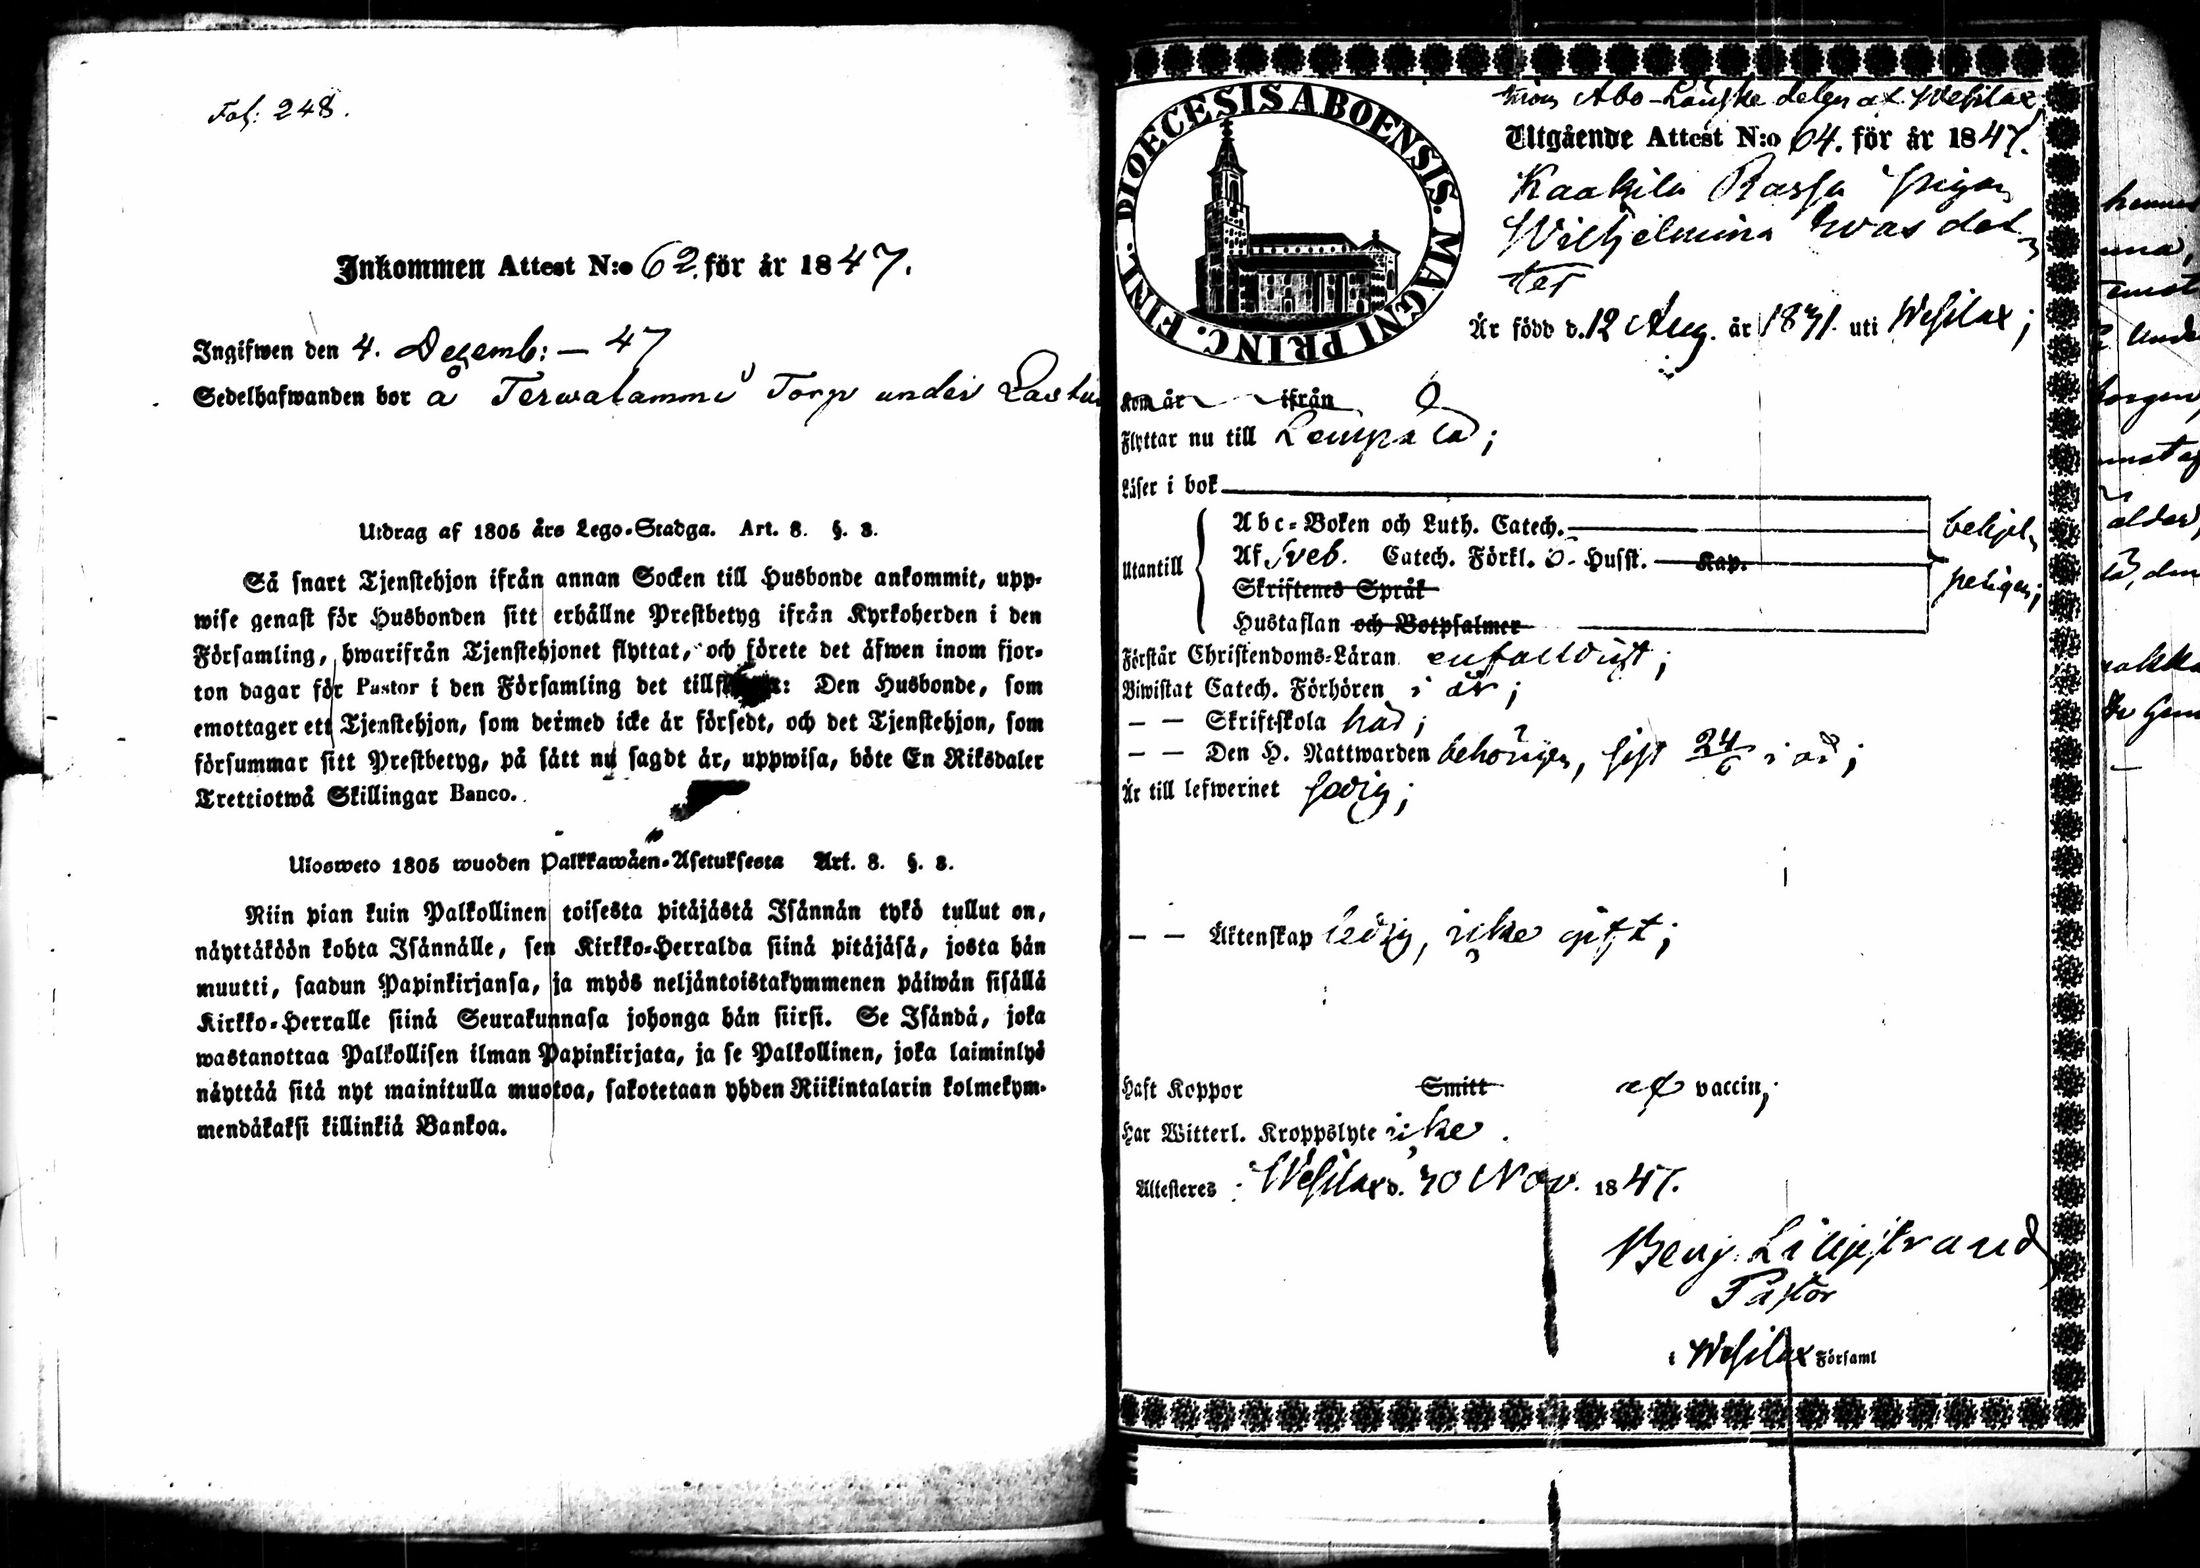 Fol: 248.
Inkommen Attest N:o 62. för år 1847.
Ingifwen den 4. Decemb: — 47
Sedelhafwanden bor å Terwalammi Torp under
Utdrag af 1805 års Lego-Stadga. Art. 8. §. 3.
Så snart Tjenstehjon ifrån annan Socken till Husbonde ankommit, upp-
wise genast för Husbonden sitt erhållne Prestbetyg ifrån Kyrkoherden i den
Församling, hwarifrån Tjenstehjonet flyttat, och förete det äfwen inom fjor-
ton dagar för Pastor i den Församling det : Den Husbonde, som
emottager ett Tjenstehjon, som dermed icke är försedt, och det Tjenstehjon, som
försummar sitt Prestbetyg, på sätt nu sagdt är, uppwisa, böte En Riksdaler
Trettiotwå Skillingar Banco.
Ulosweto 1805 wuoden Palkkawäen-Asetuksesta Art. 8. §. 3.
Niin pian kuin Palkollinen toisesta pitäjästä Isännän tykö tullut on,
näyttäköön kohta Isännälle, sen Kirkko-Herralda siinä pitäjäsä, josta hän
muutti, saadun Papinkirjansa, ja myös neljäntoistakymmenen päiwän sisällä
Kirkko-Herralle siinä Seurakunnasa johonga hän siirsi. Se Isändä, joka
wastanottaa Palkollisen ilman Papinkirjata, ja se Palkollinen, joka laiminlyö
näyttää sitä nyt mainitulla muotoa, sakotetaan yhden Riikintalarin kolmekym-
mendäkaksi killinkiä Bankoa.
DIOECESIS ABOENSIS. MAGNI PRINC. FINL.
från Åbo-Länske delen af Wesilax
Utgående Attest N:o 64. för år 1847.
Kaakila Rassa pigan
Wilhjelmina Twas dot-
ter
Är född d. 12 Aug. år 1831. uti Wesilax;
Kom år ifrån
Flyttar nu till Lempälä;
Läser i bok
Utantill
Abc-Boken och Luth. Catech.
Af Sveb. Catech. Förkl. o. Husst. Kap.
Skriftenes Språk
Hustaflan och Botpsalmer
behjel-
peligen;
Förstår Christendoms-Läran enfaldigt;
Biwistat Catech. Förhören i år;
— — Skriftskola här;
— — Den H. Nattwarden behörigen, sist 24/6 i år;
Är till lefwernet sedig;
— — Äktenskap ledig, icke gift;
Haft Koppor Smitt af vaccin;
Har Witterl. Kroppslyte icke.
Attesteres Wesilax d. 30 Nov. 1847.
Benj. Liljestrand
Pastor
i Wesilax Församl